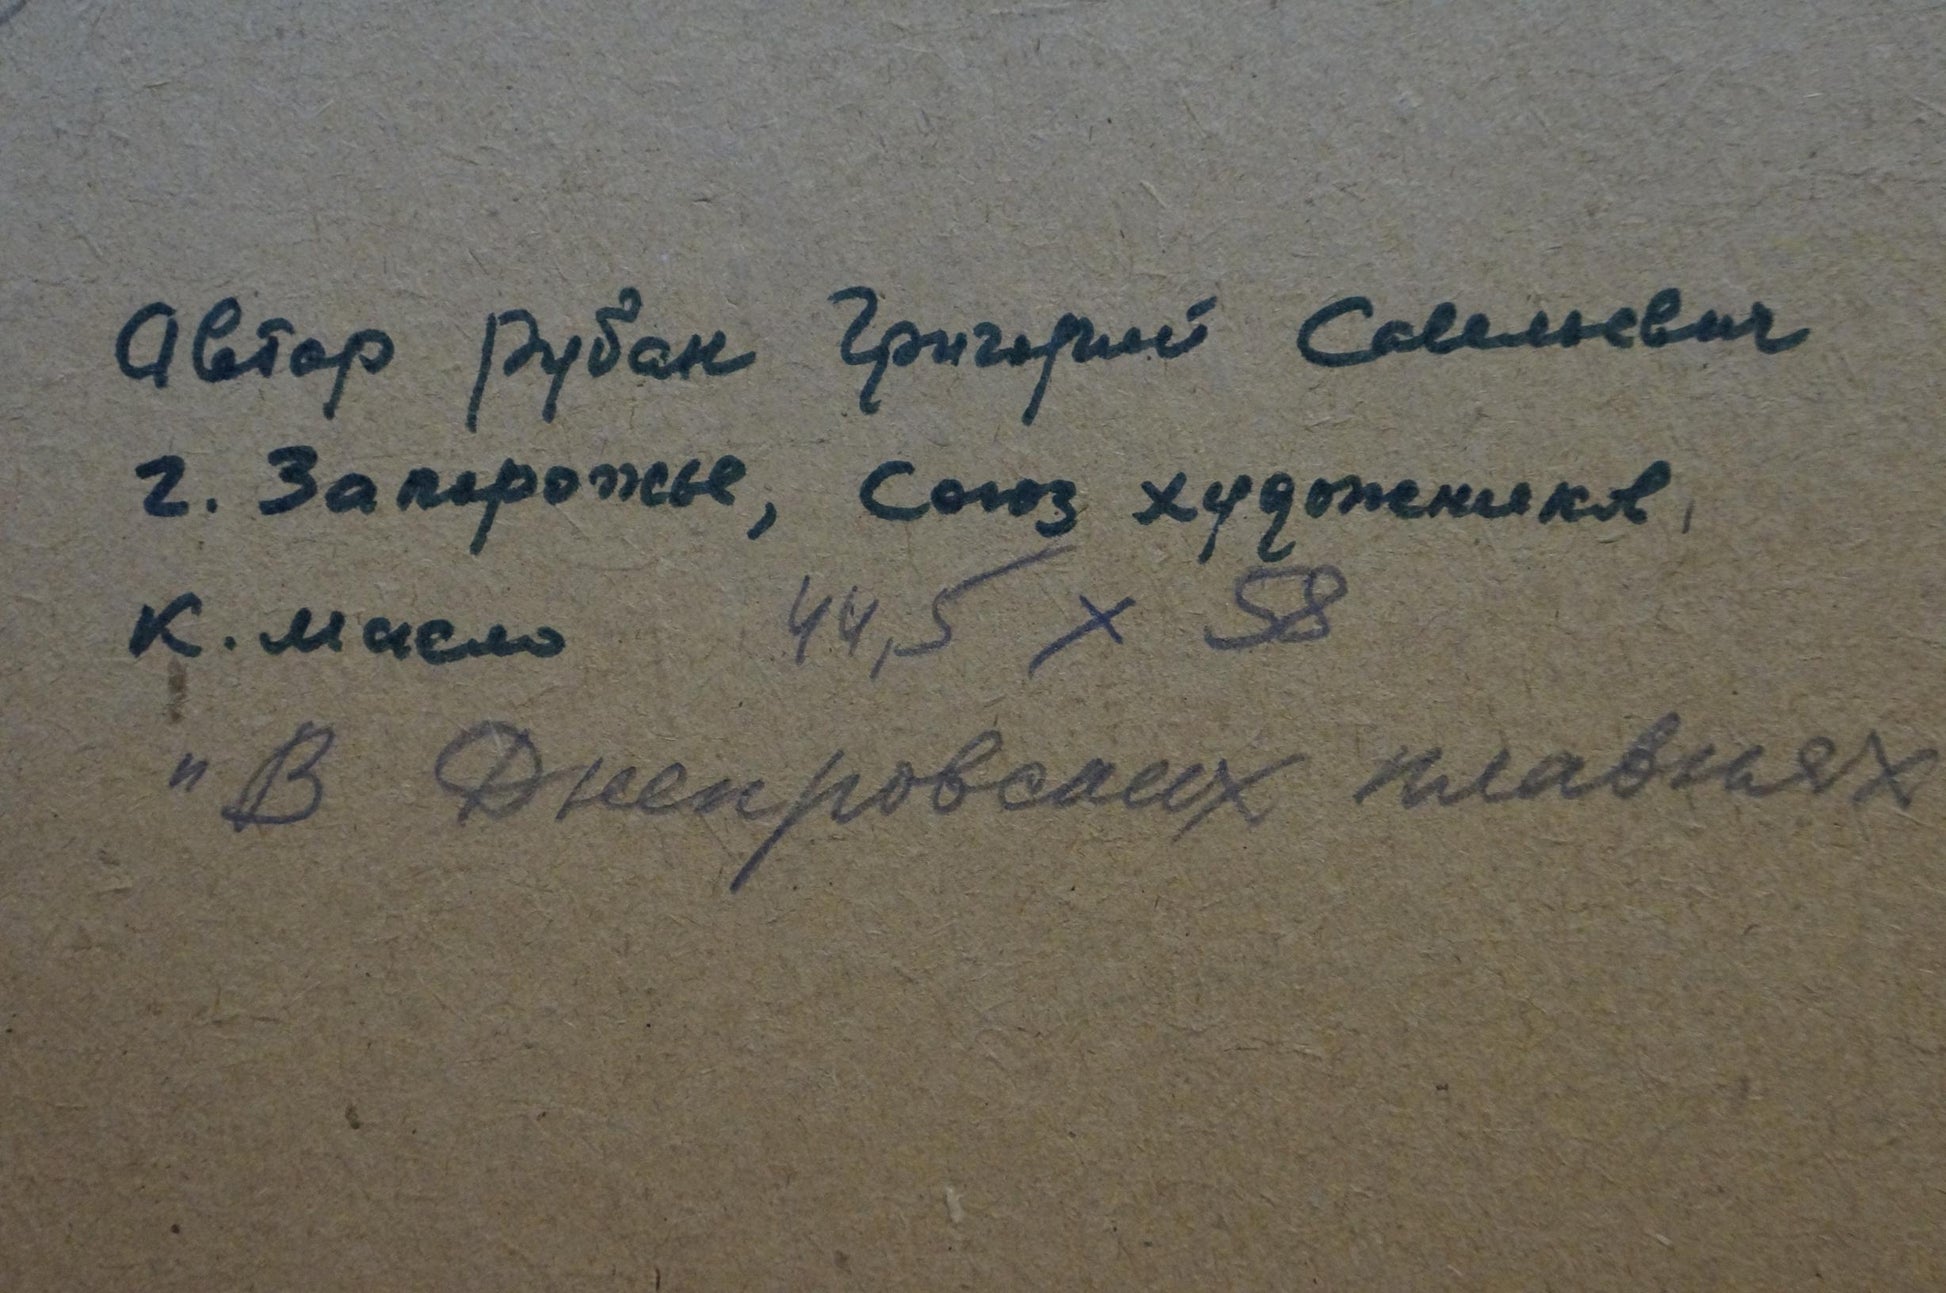 Автор Рубан Григорий Савельевич
г. Запорожье, Союз художников,
К. масло 44,5 х 58
"В Днепровских плавнях